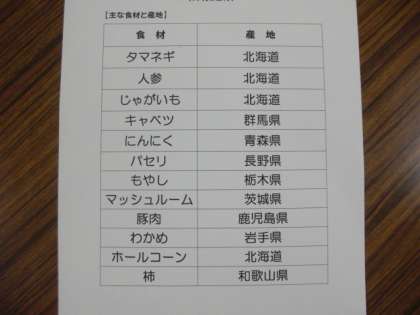 【主な食材と産地】
食材 産地
タマネギ 北海道
人参 北海道
じゃがいも 北海道
キャベツ 群馬県
にんにく 青森県
パセリ 長野県
もやし 栃木県
マッシュルーム 茨城県
豚肉 鹿児島県
わかめ 岩手県
ホールコーン 北海道
柿 和歌山県